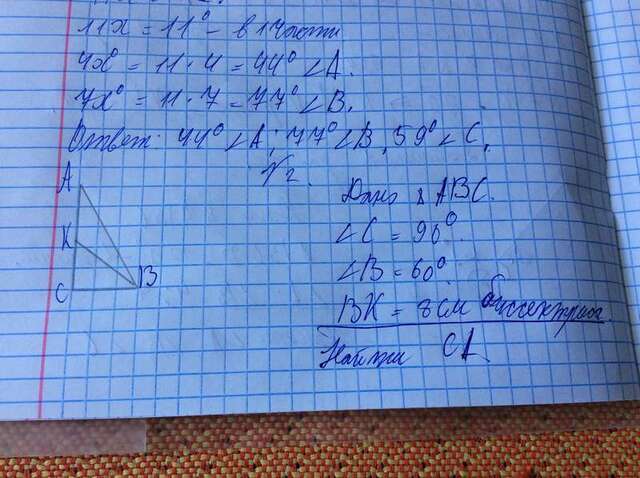 11x = 11° - в 1 части
4x° = 11 · 4 = 44° ∠A.
7x° = 11 · 7 = 77° ∠B.
Ответ: 44° ∠A; 77° ∠B, 59° ∠C.
№2.
A
K
C
B
Дано Δ ABC.
∠C = 90°
∠B = 60°
BK = 8 см биссектриса
Найти CA.